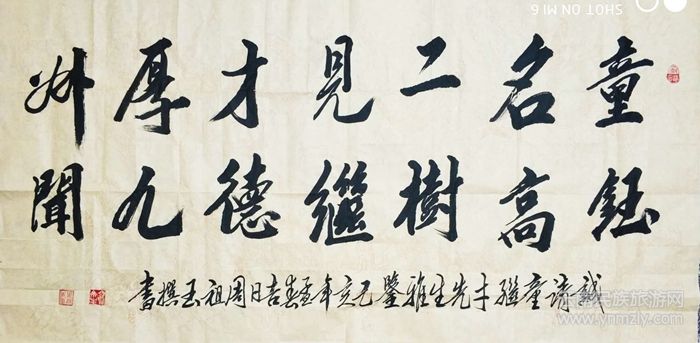 童鈺
名高
二樹
見繼
才德
厚九
州聞
誠請童繼才先生雅鑒己亥年孟春吉日周祖玉撰書
SHOT ON MI 6
民族旅游网
www.ynmzly.com